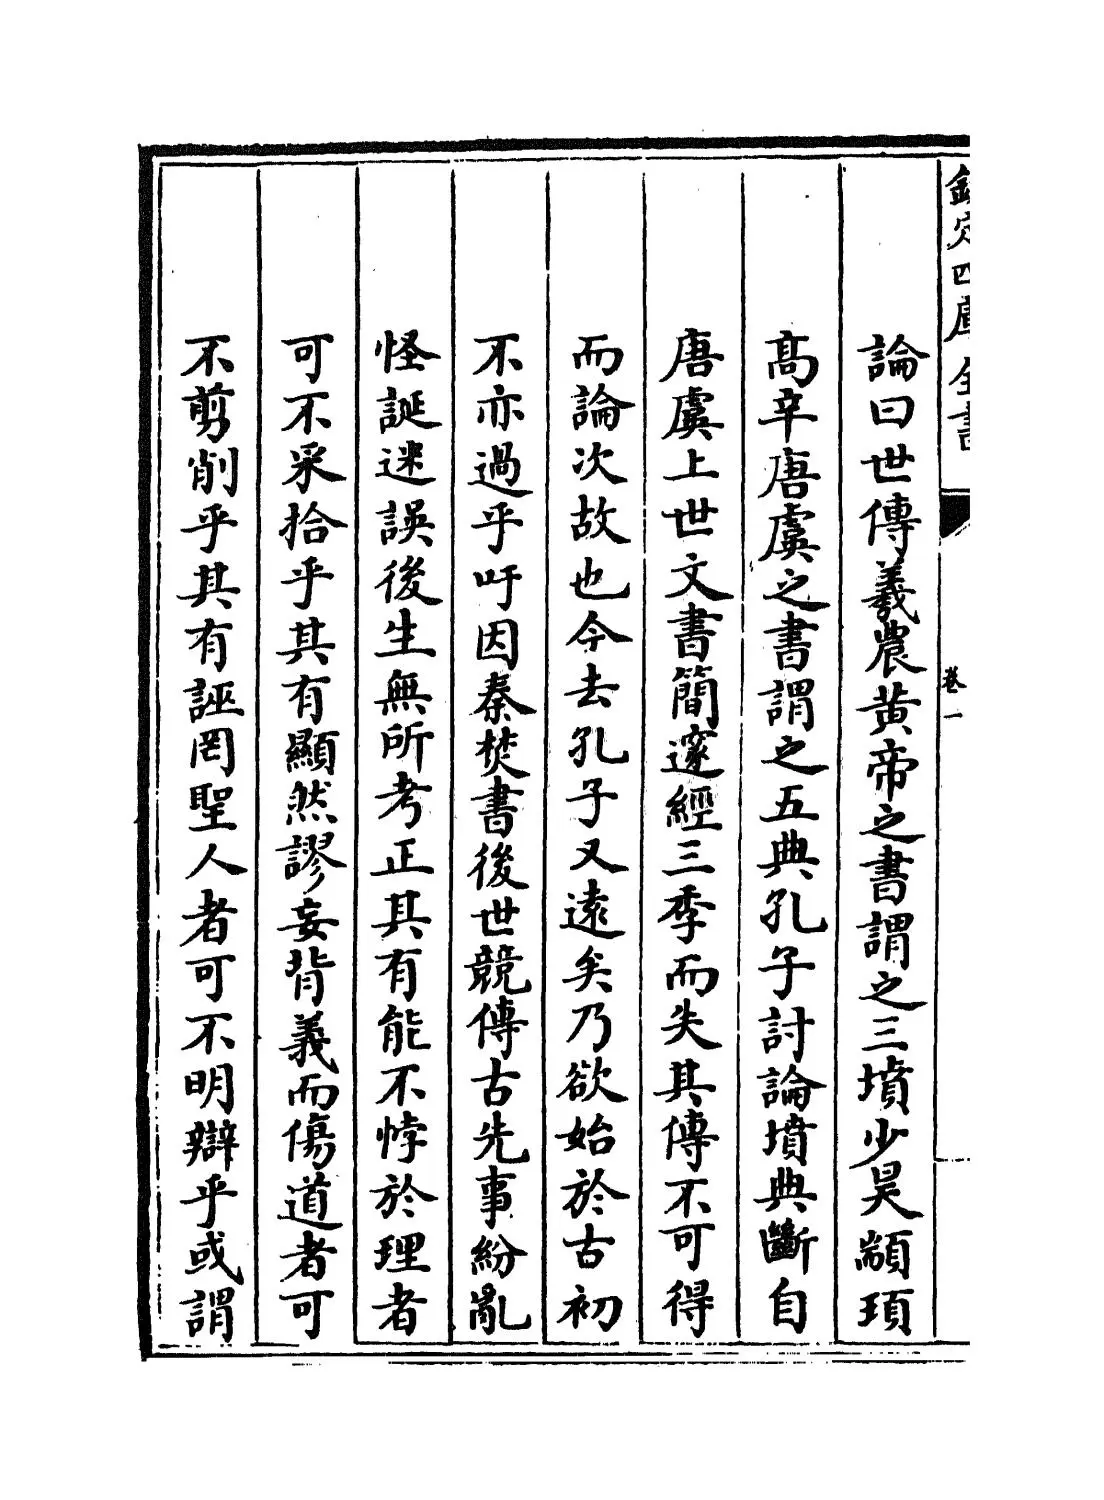 欽定四庫全書
卷一
論曰世傳羲農黄帝之書謂之三墳少昊顓頊
髙辛唐虞之書謂之五典孔子討論墳典斷自
唐虞上世文書簡邃經三季而失其傳不可得
而論次故也今去孔子又遠矣乃欲始於古初
不亦過乎吁因秦焚書後世競傳古先事紛亂
怪誕迷誤後生無所考正其有能不悖於理者
可不采拾乎其有顯然謬妄背義而傷道者可
不剪削乎其有誣罔聖人者可不明辯乎或謂